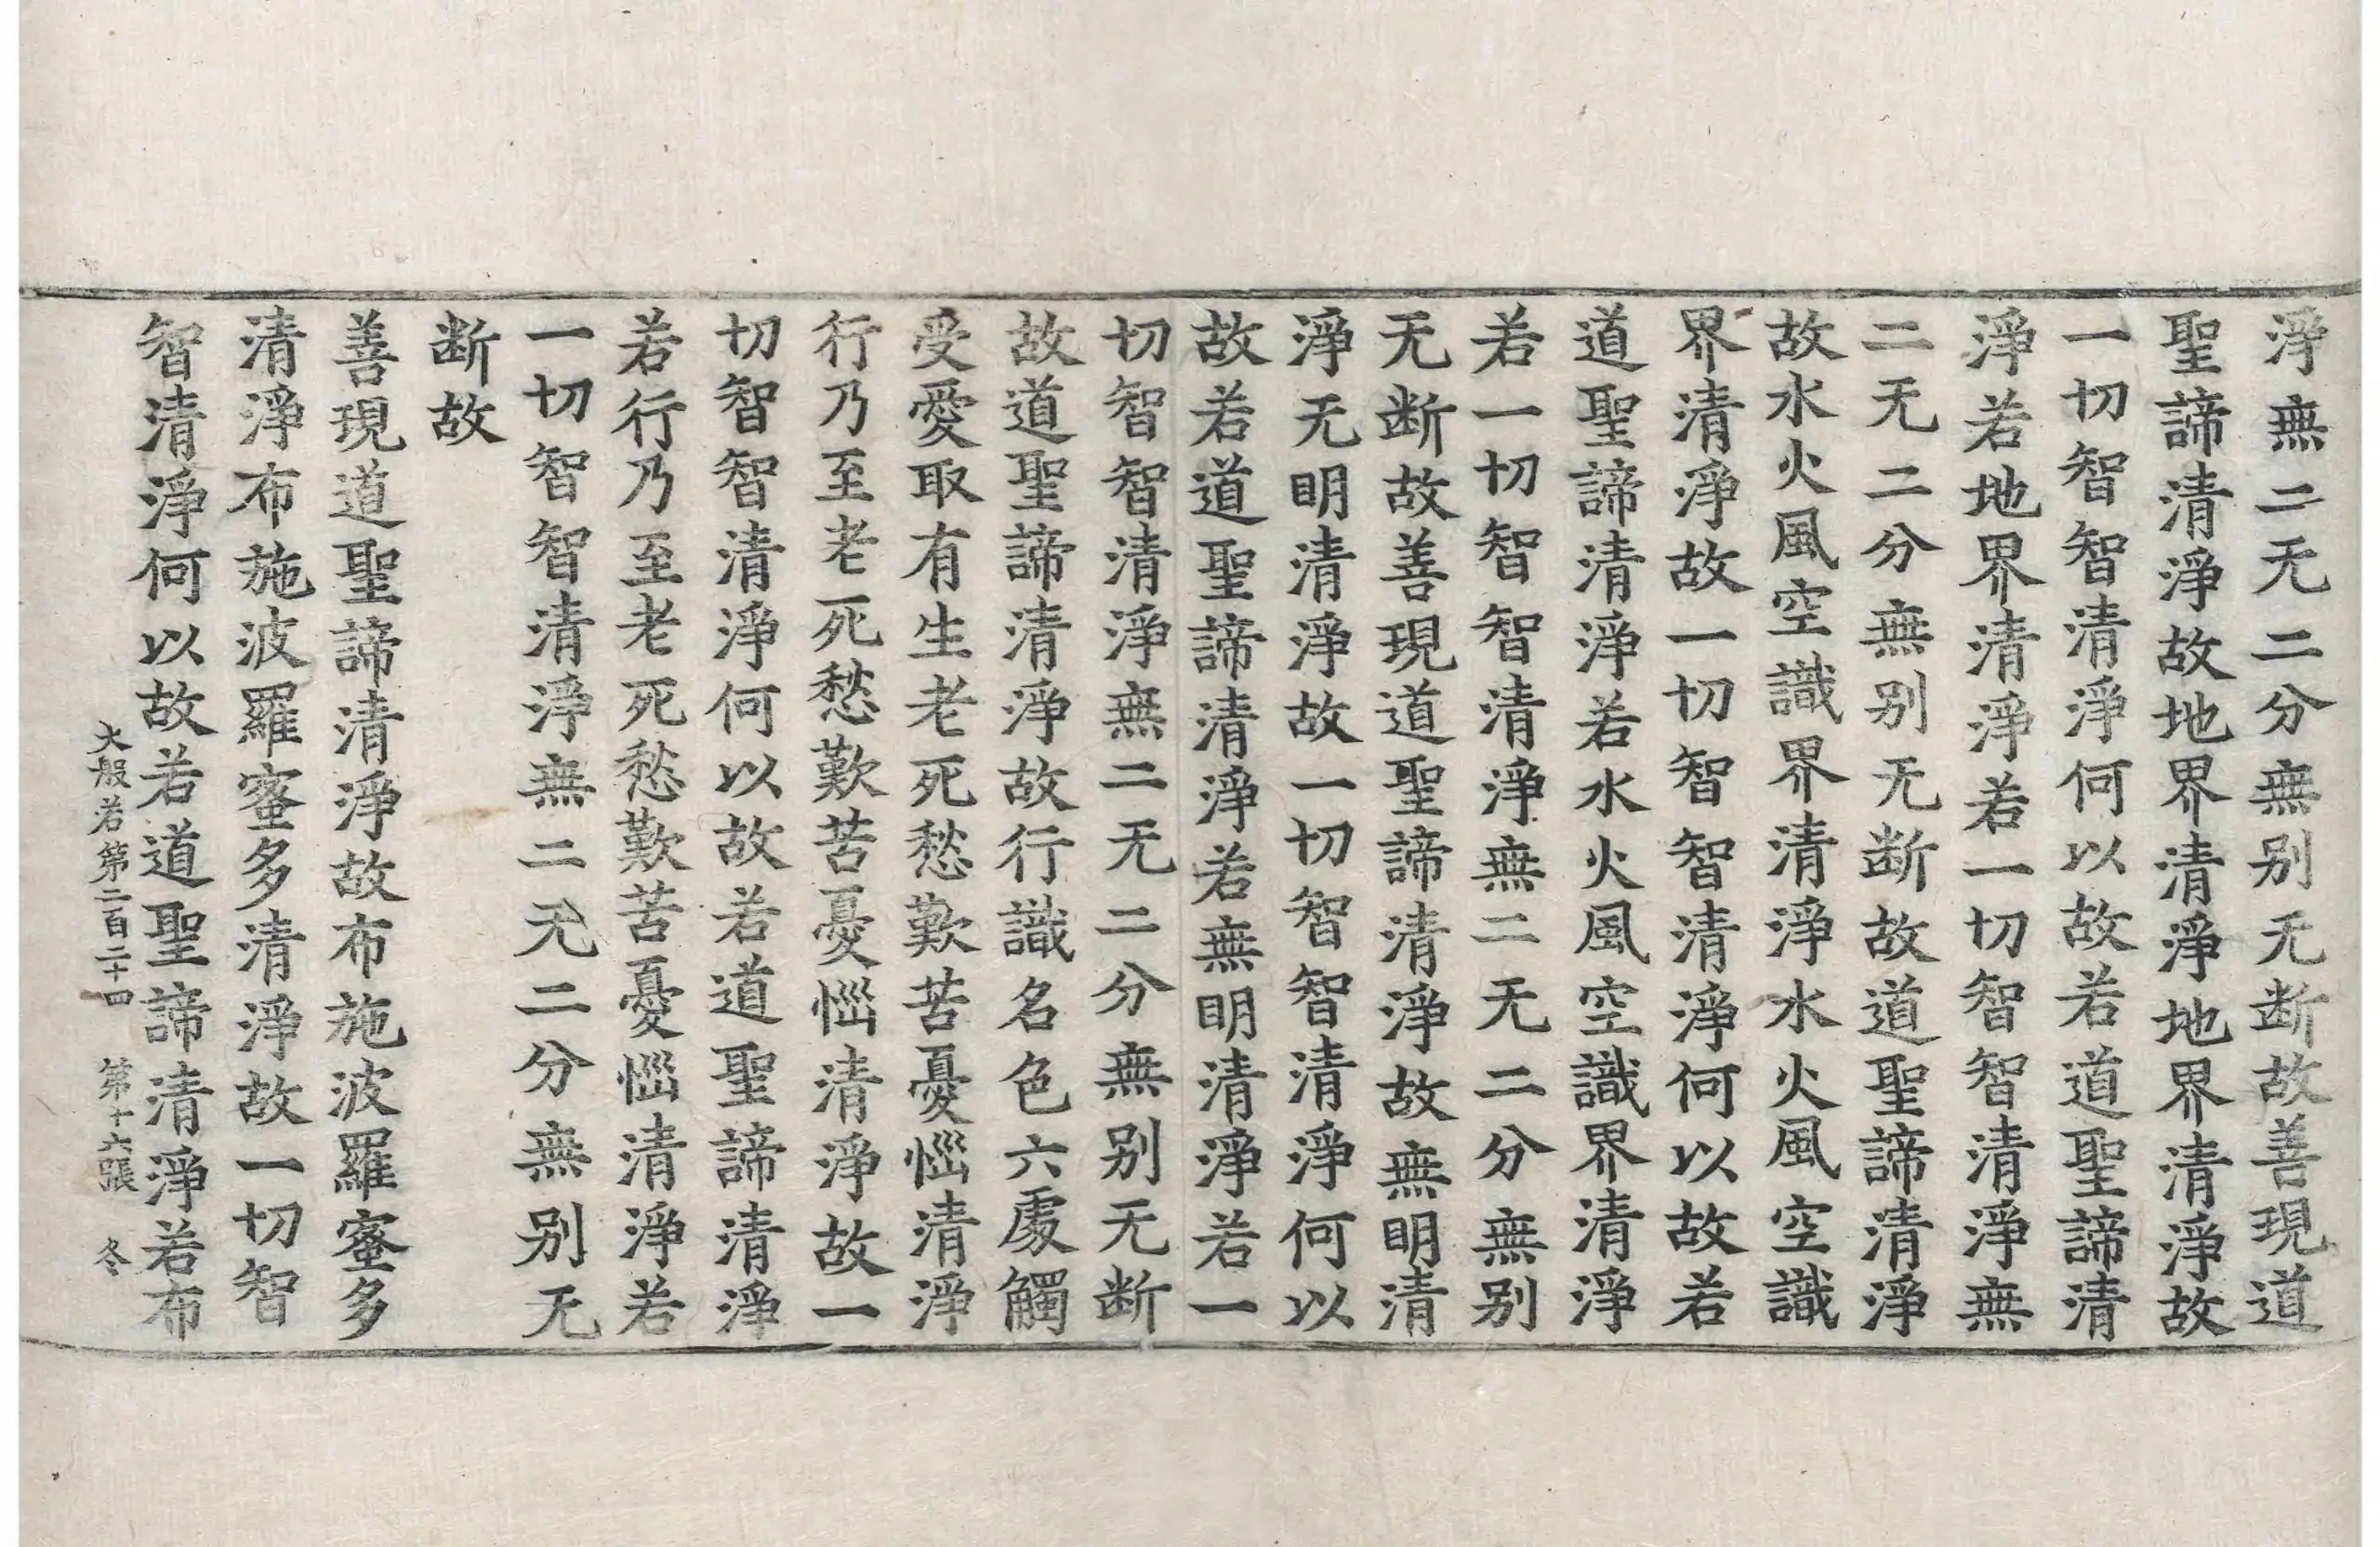 淨無二无二分無别无断故善現道
聖諦清淨故地界清淨地界清淨故
一切智智清淨何以故若道聖諦清
淨若地界清淨若一切智智清淨無
二无二分無别无断故道聖諦清淨
故水火風空識界清淨水火風空識
界清淨故一切智智清淨何以故若
道聖諦清淨若水火風空識界清淨
若一切智智清淨無二无二分無别
无断故善現道聖諦清淨故無明清
淨无明清淨故一切智智清淨何以
故若道聖諦清淨若無明清淨若一
切智智清淨無二无二分無别无断
故道聖諦清淨故行識名色六處觸
受愛取有生老死愁歎苦憂惱清淨
行乃至老死愁歎苦憂惱清淨故一
切智智清淨何以故若道聖諦清淨
若行乃至老死愁歎苦憂惱清淨若
一切智智清淨無二无二分無别无
断故
善現道聖諦清淨故布施波羅蜜多
清淨布施波羅蜜多清淨故一切智
智清淨何以故若道聖諦清淨若布
大般若第二百二十四 第十六張 冬